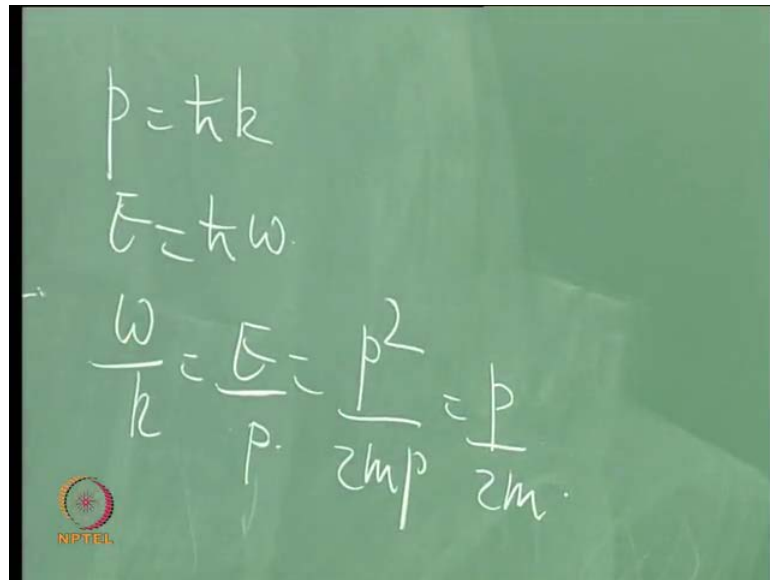 p = ħk
E = ħω.
ω/k = E/p. = p²/2mp = p/2m.
NPTEL